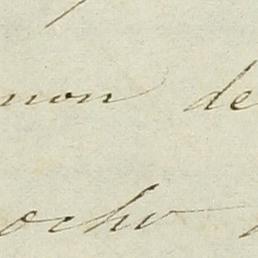 non de
ocho